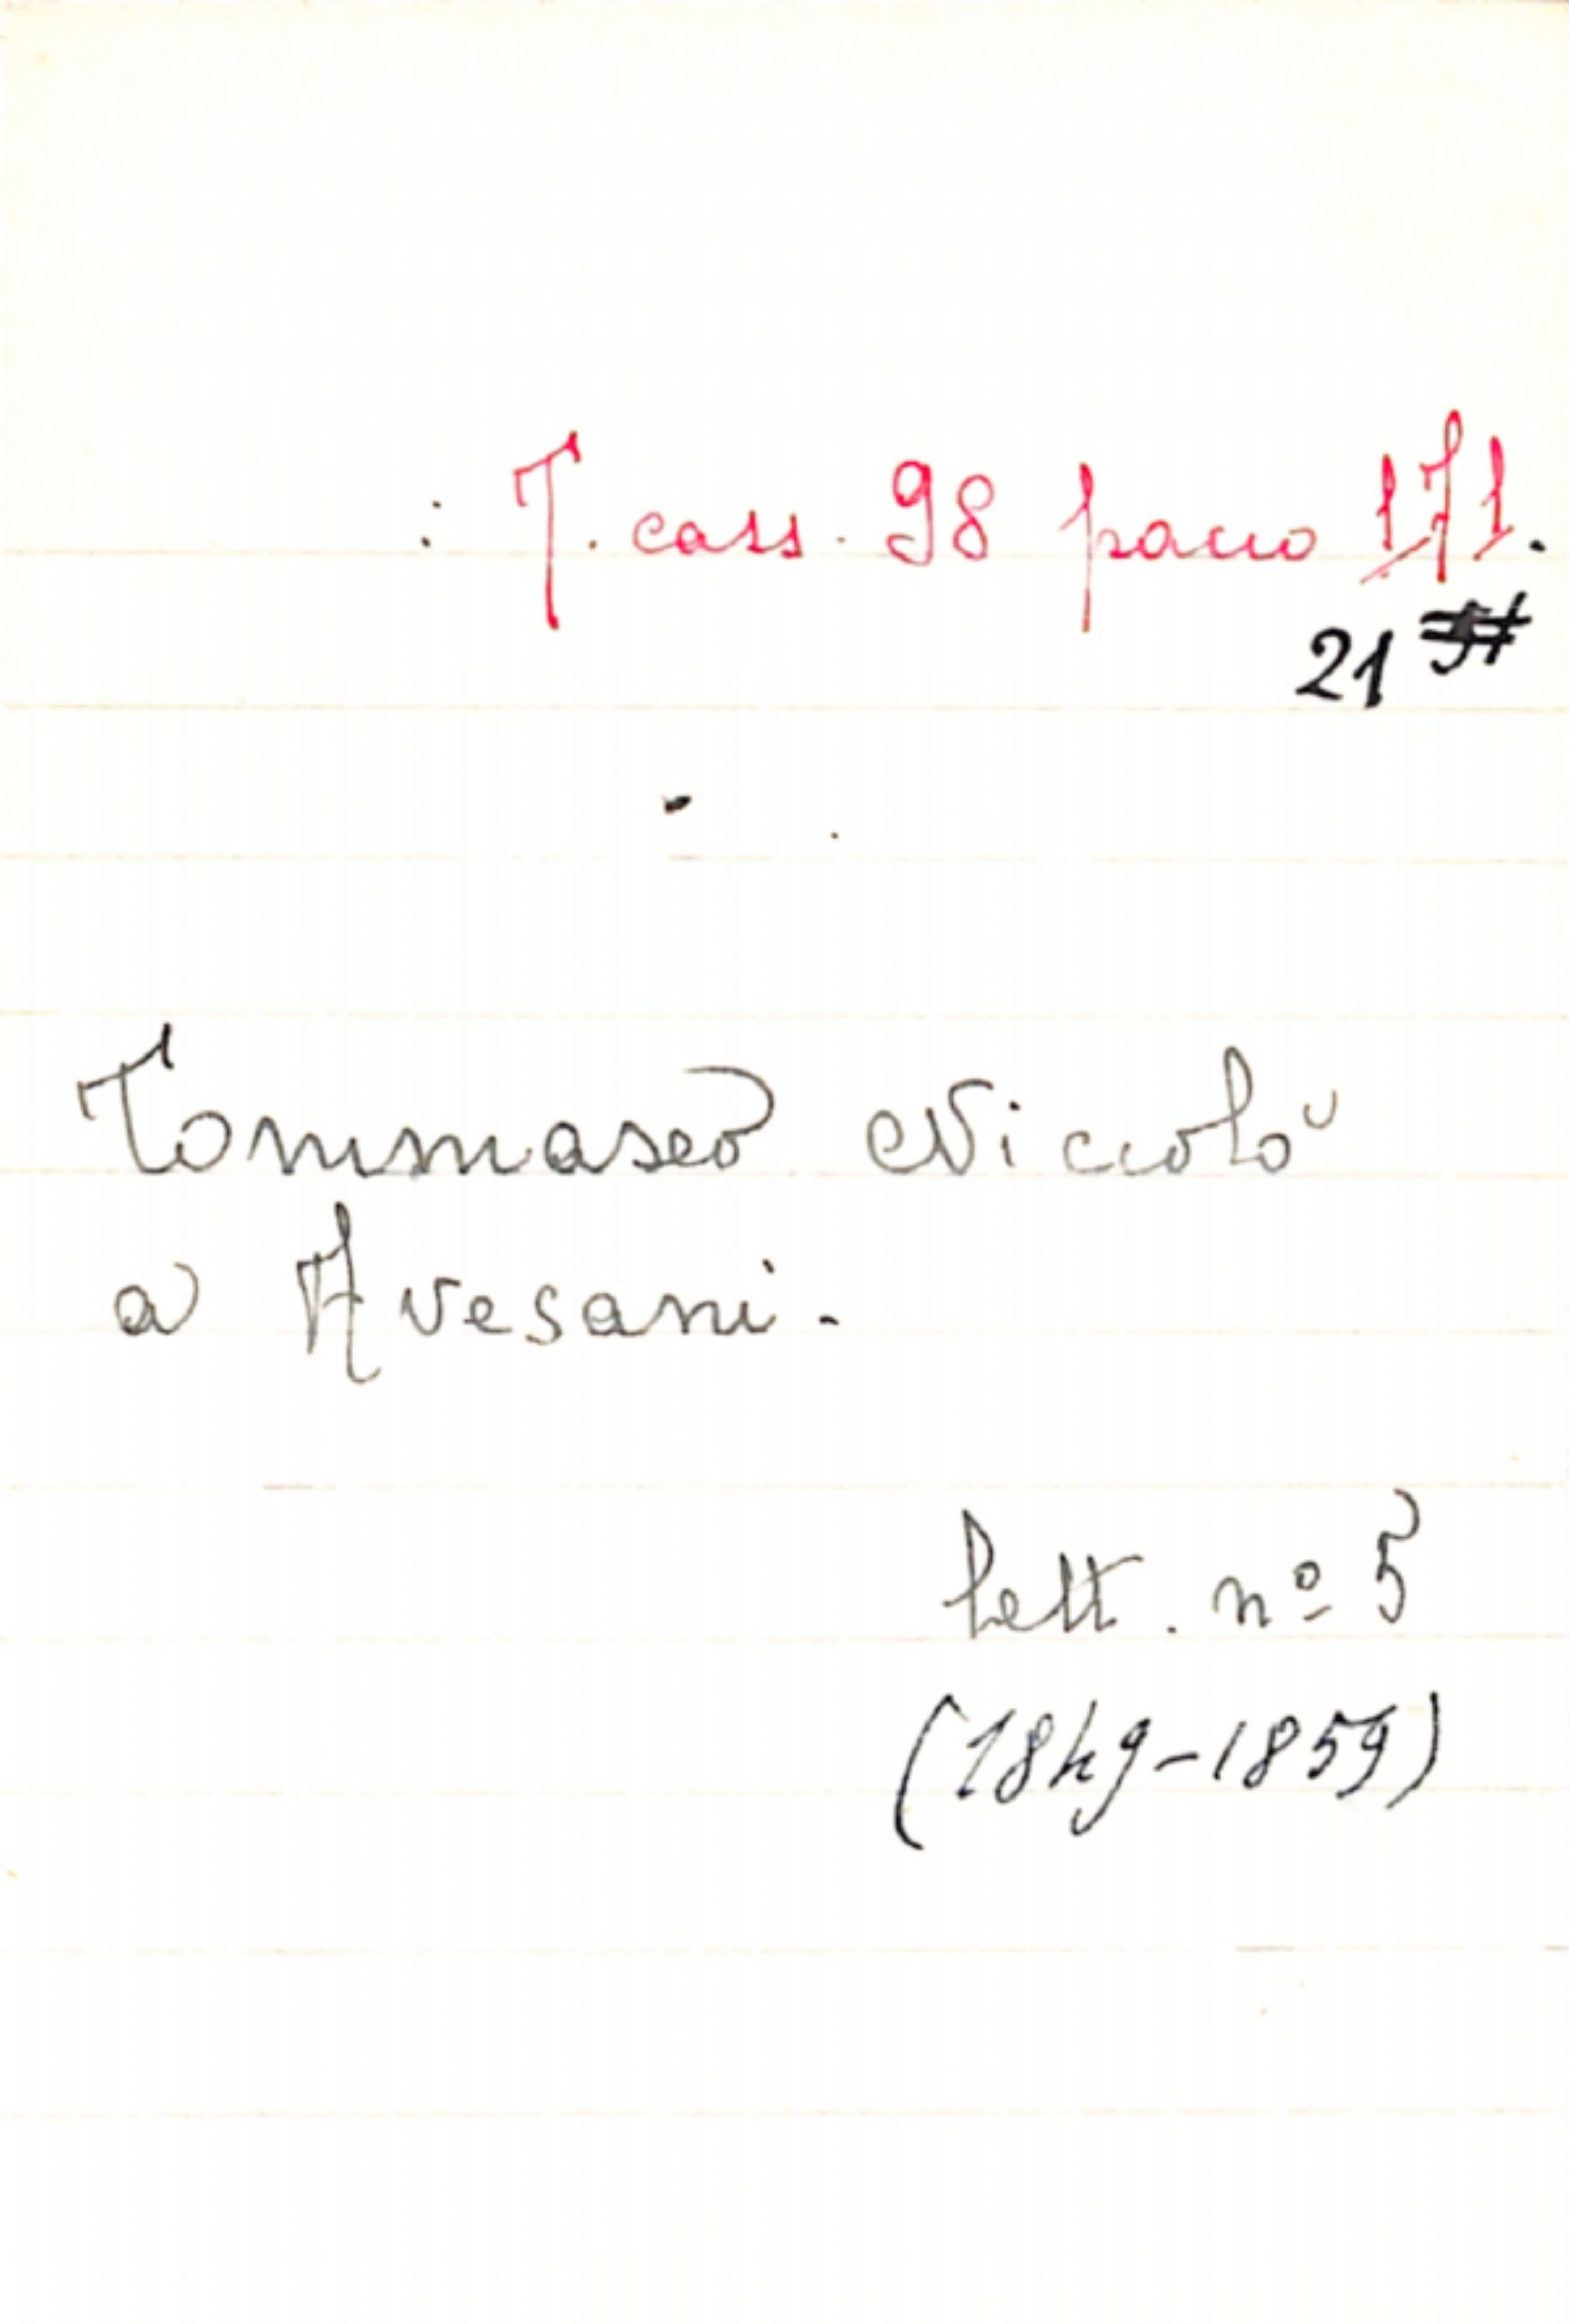 : T. cass. 98 pacco 171.
21
Tommaseo Niccolò
a Avesani.
lett. nº 5
(1849-1859)